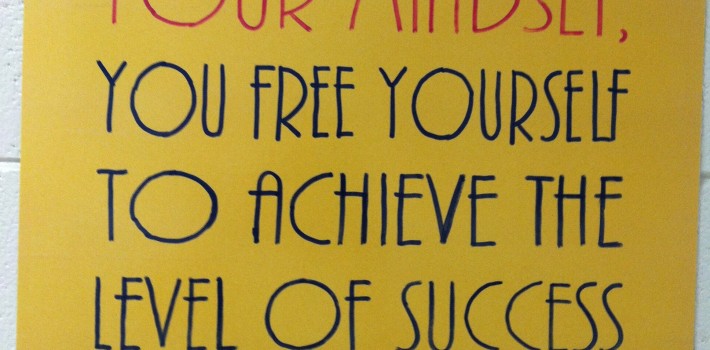 YOUR MINDSET,
YOU FREE YOURSELF
TO ACHIEVE THE
LEVEL OF SUCCESS